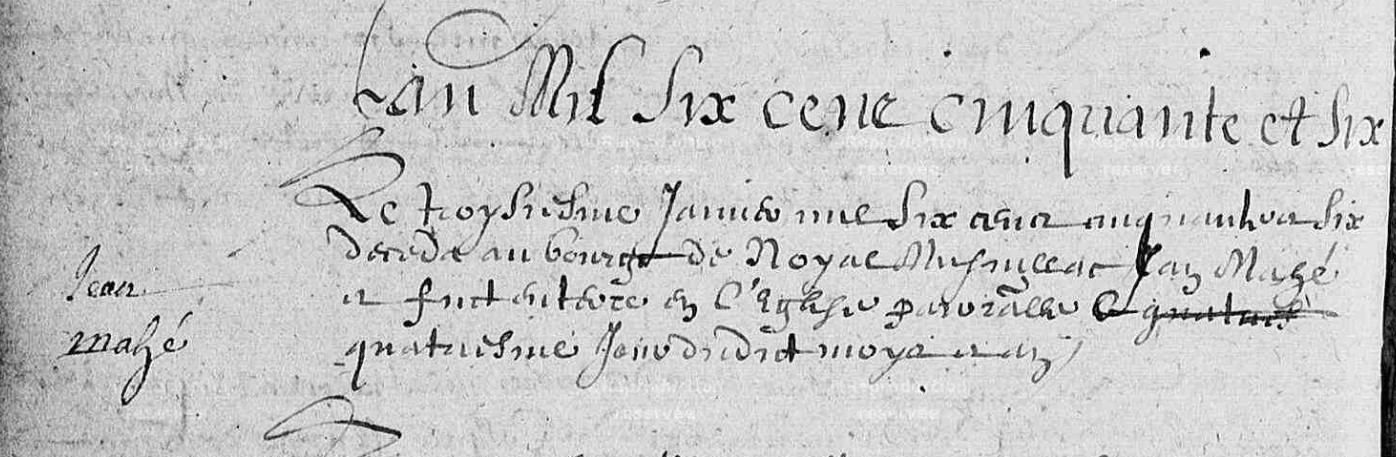 Lan Mil Six cene cinquante et six
Le troysiesme Janvier mil six cent cinquante et six
deceda au bourg de Noyal Musuillac Jan Mahé
et fut enterré en l'Eglise paroialle le quatries
quatriesme Jour dudict moys et an
Jean
mahé